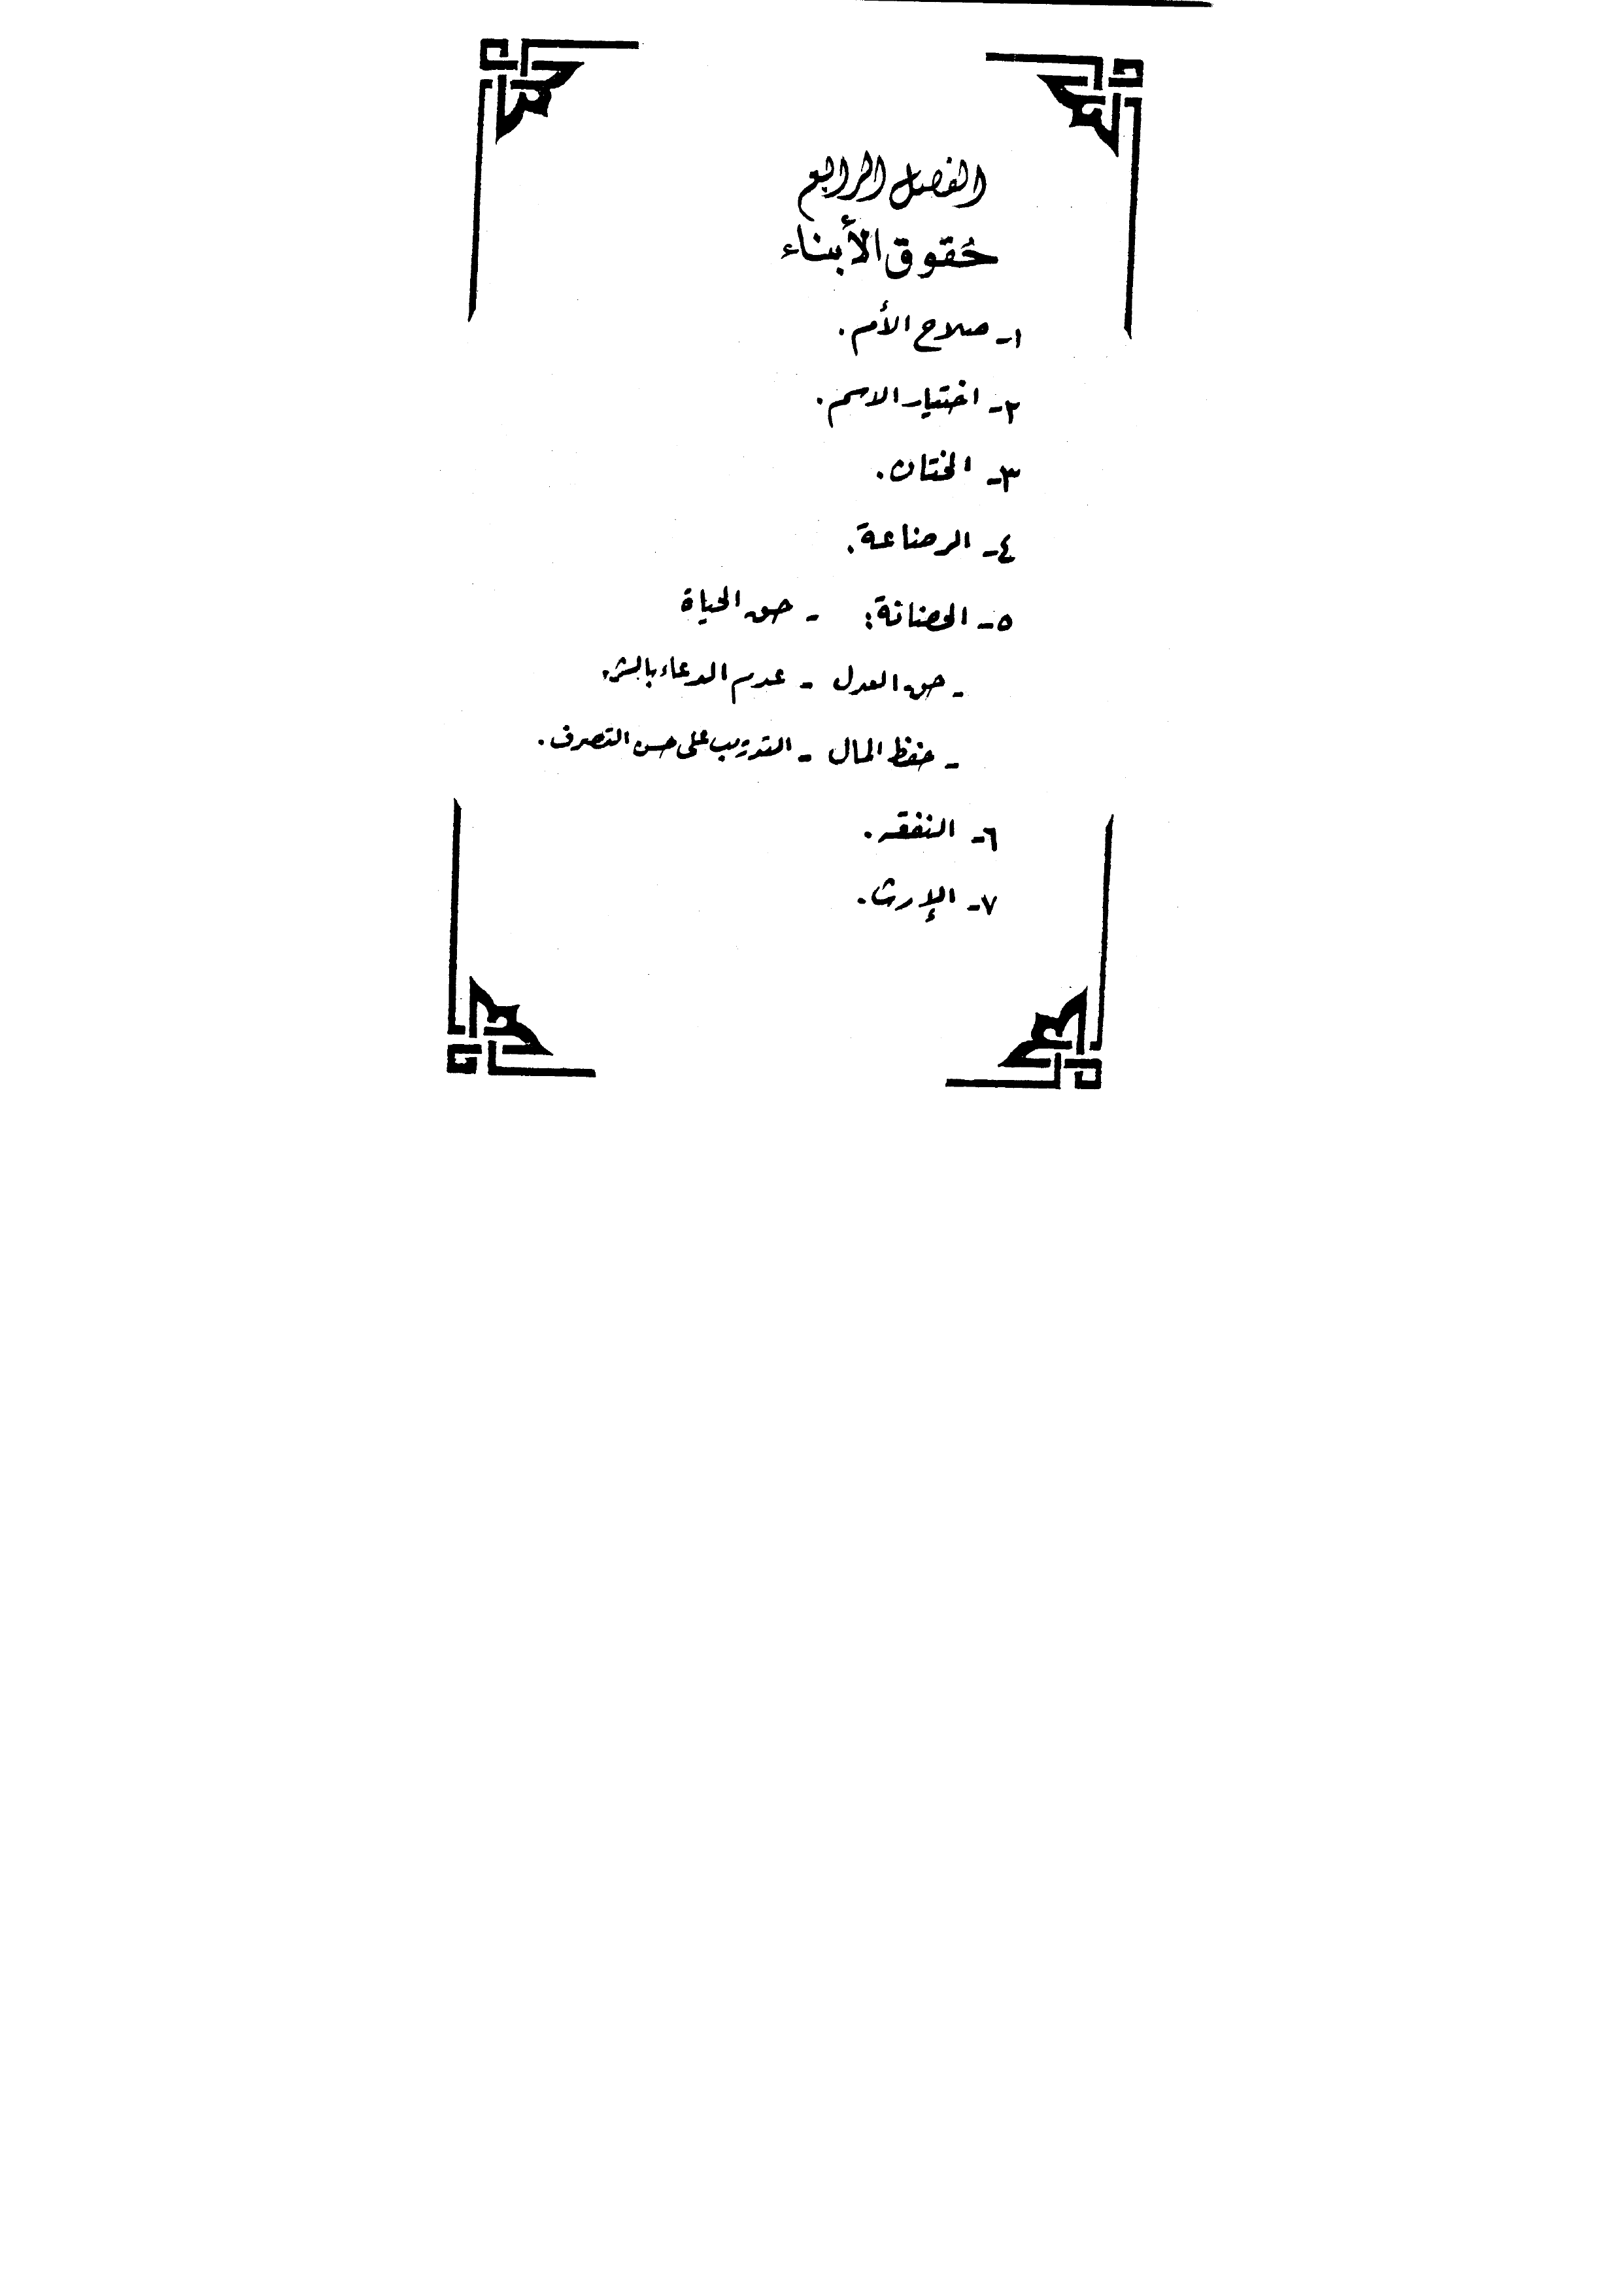 الفصل الرابع
حُقوق الأبناء
١- صلاح الأم.
٢- اختيار الاسم.
٣- الختان.
٤- الرضاعة.
٥- الحضانة: - حق الحياة
- حق العدل - عدم الدعاء بالشر.
- حفظ المال - التدريب على حسن التصرف.
٦- النفقة.
٧- الإرث.